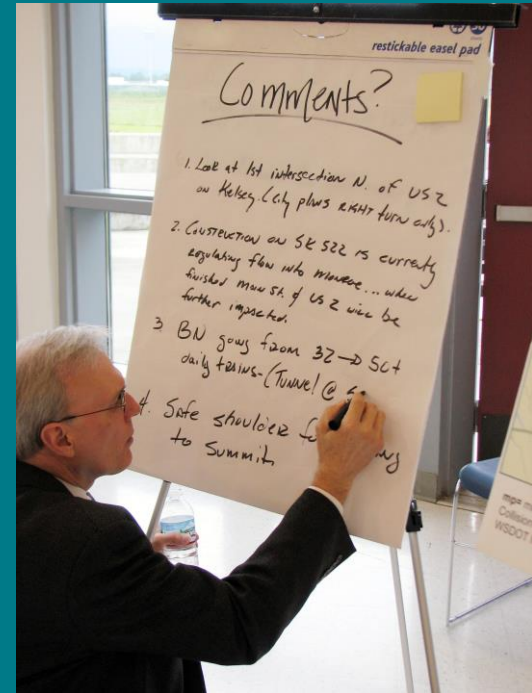 restickable easel pad
Comments?
1. Look at 1st intersection N. of US 2
on Kelsey. (City plans RIGHT turn only).
2. Construction on SR 522 is currently
regulating flow into Monroe... when
finished Main St. & US 2 will be
further impacted.
3. BN going from 32 → 50+
daily trains - (Tunnel @
4. Safe shoulder
to Summit
Collision
WSDOT